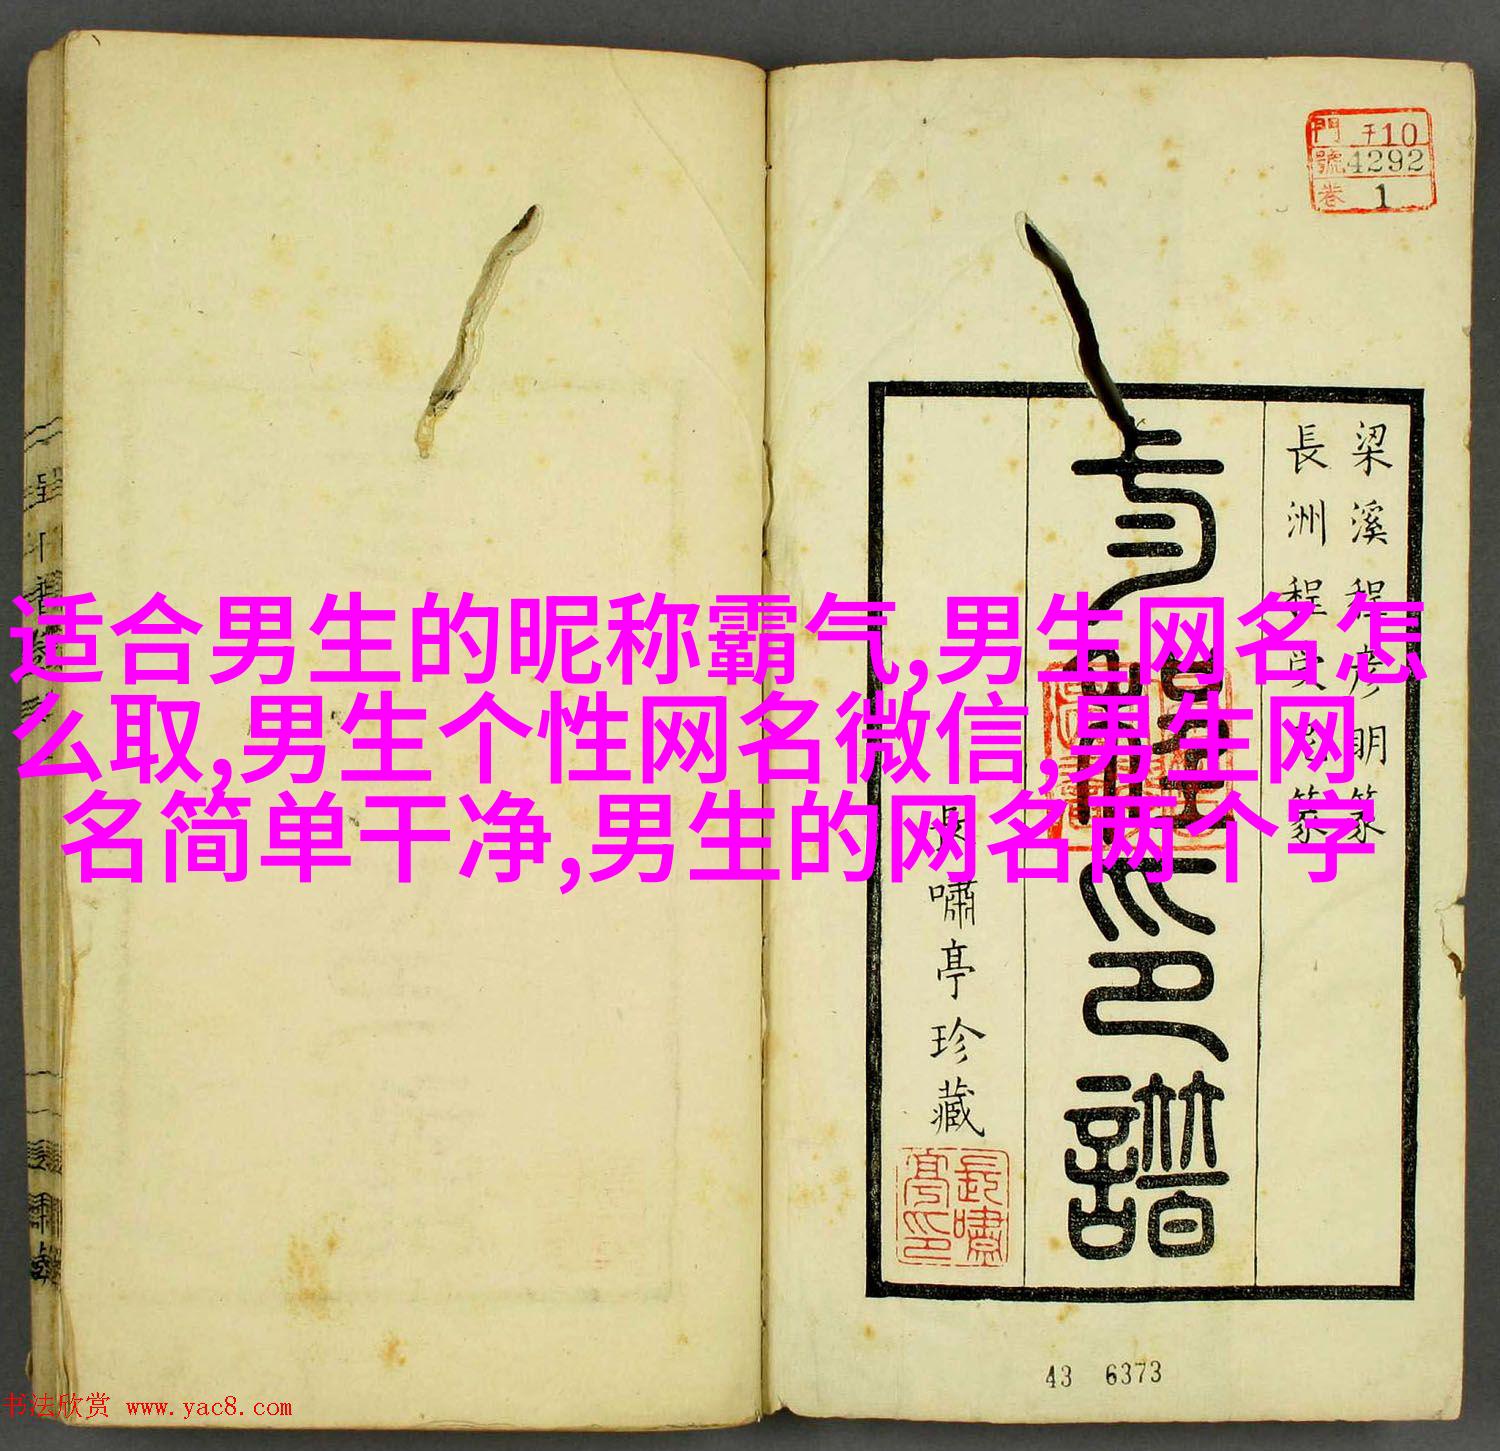 適合男生的昵称霸气,男生网名怎
么取,男生个性网名微信,男生网
名简单干净,男生的网名两个字
門 子10
號 4292
卷 1
梁溪程彦明篆
長洲程
篆
印譜
長嘯亭珍藏
長嘯亭印
43 6373
书法欣赏 www.yac8.com